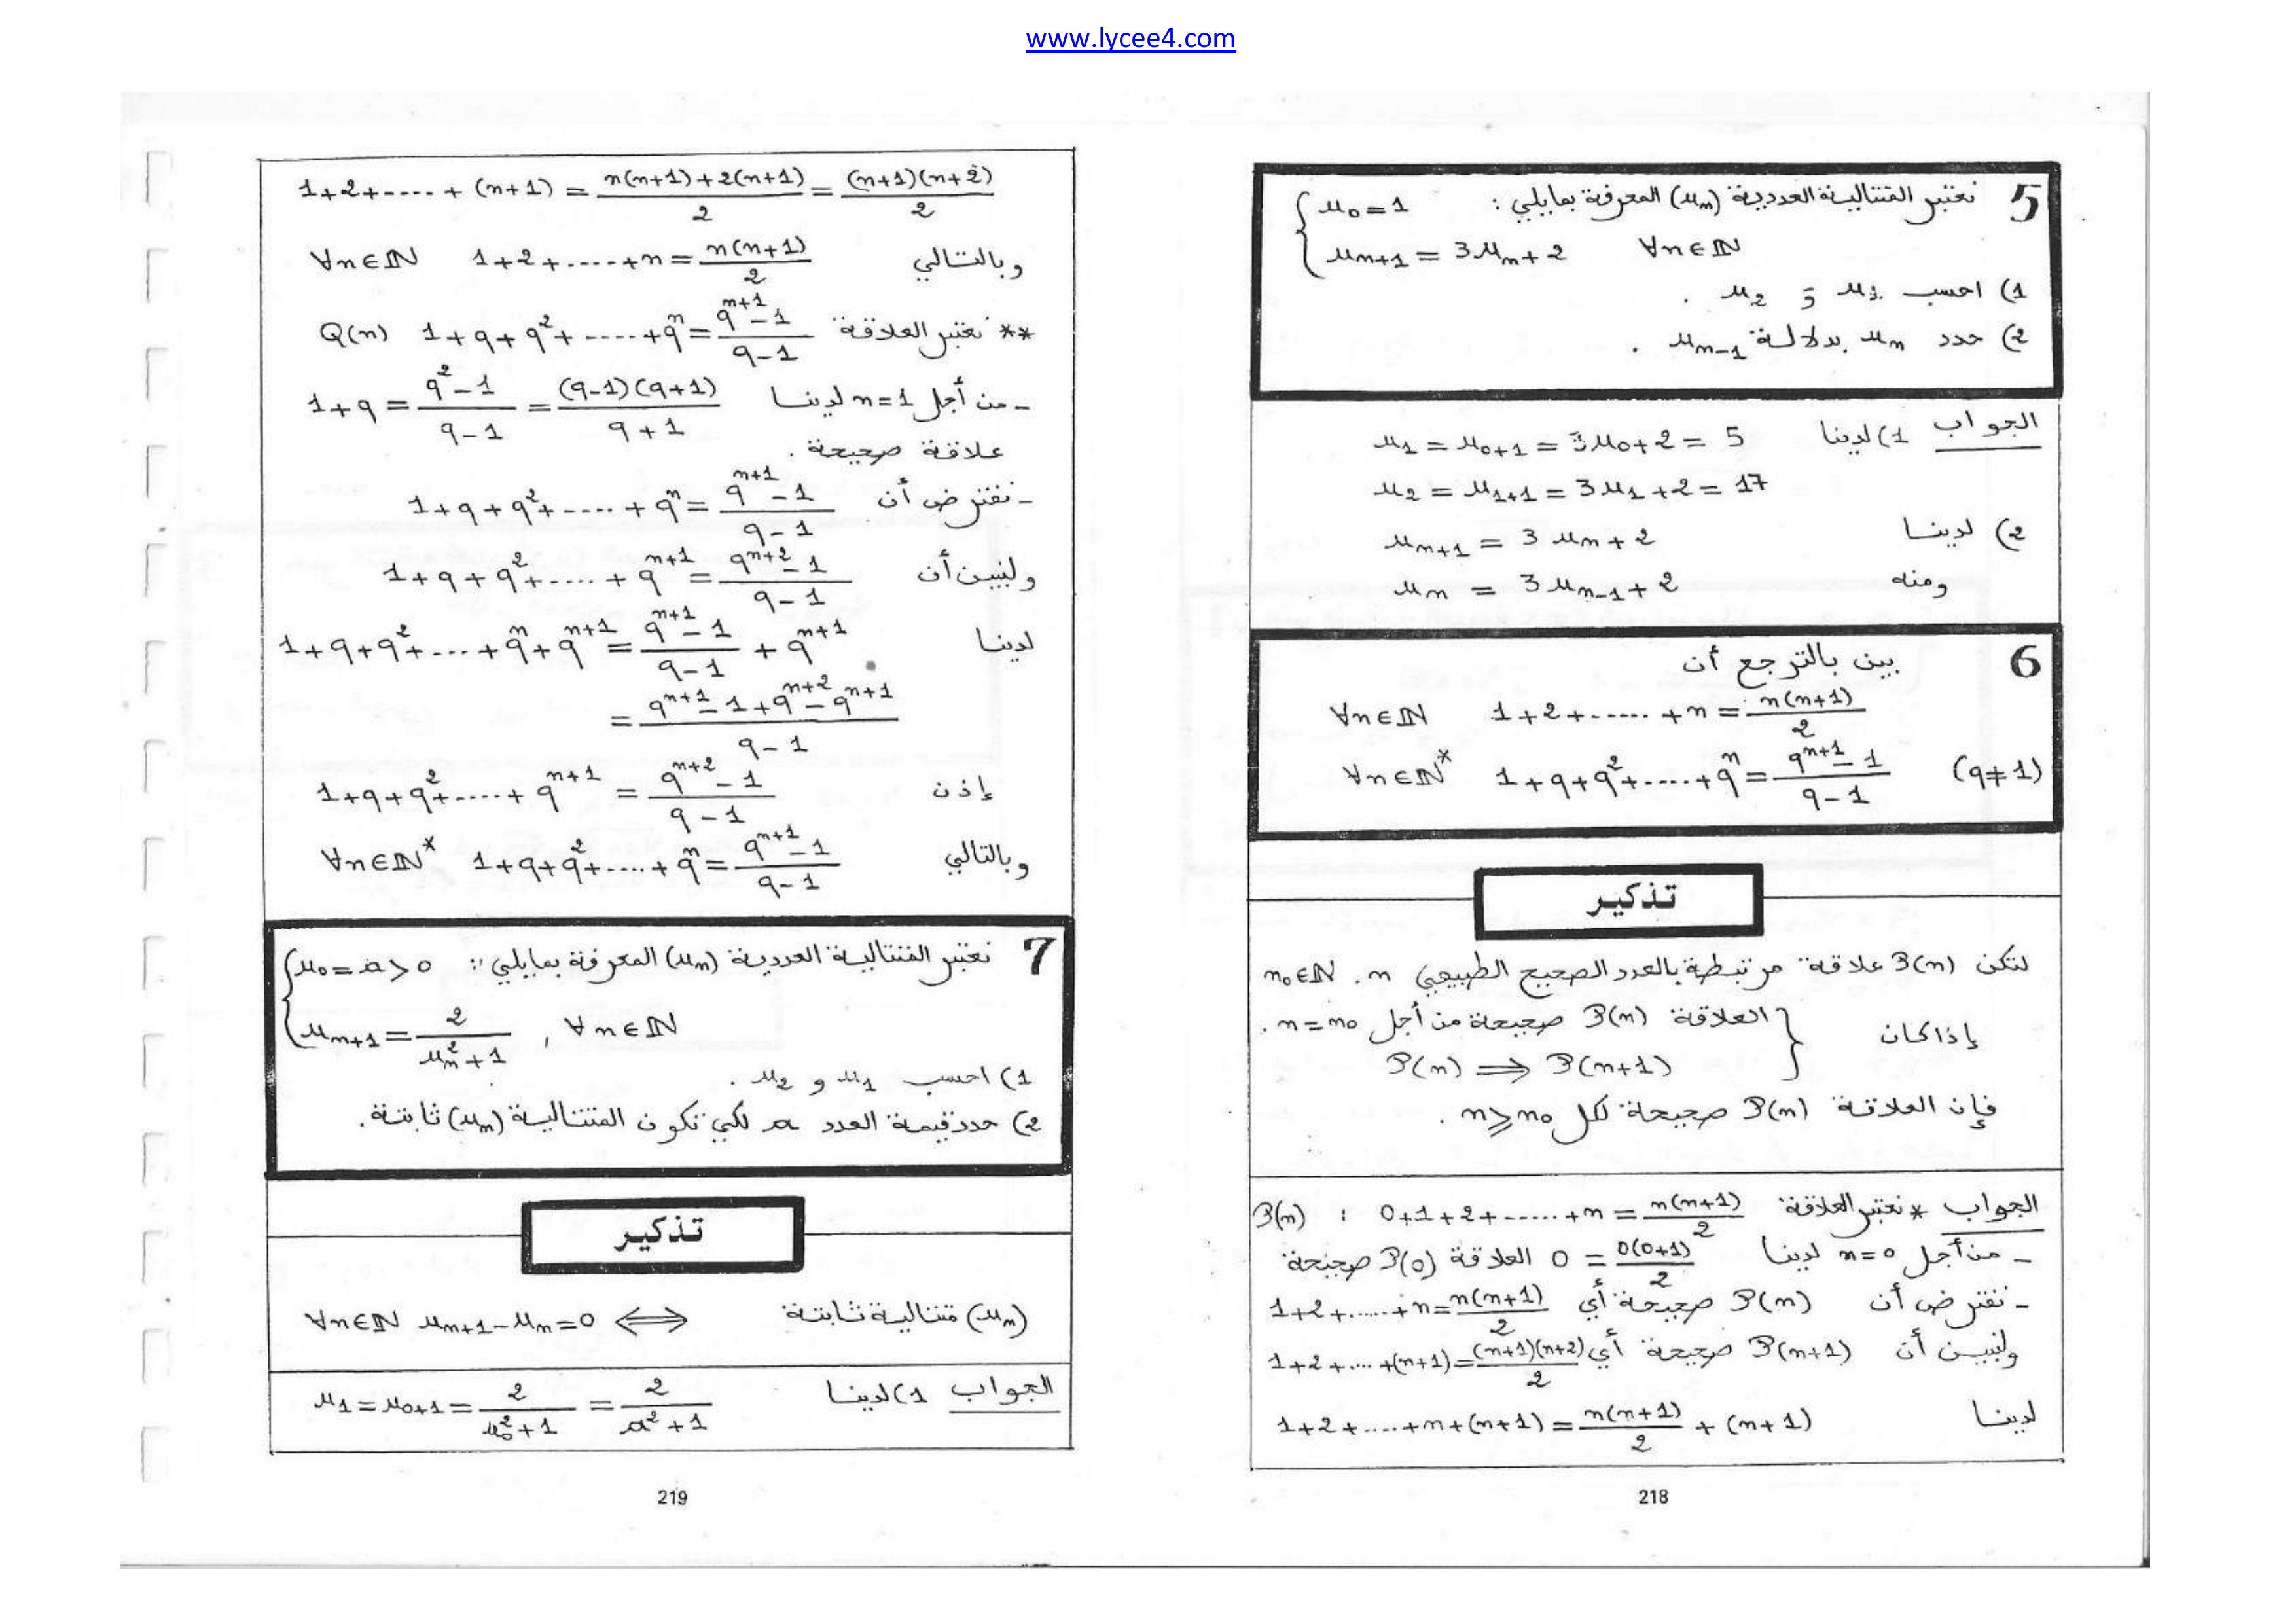 www.lycee4.com
5 نعتبر المتتالية العددية (u_n) المعرفة بمايلي : { u_0 = 1
u_{n+1} = 3u_n + 2 ∀n∈ℕ
1) احسب u_1 و u_2 .
2) حدد u_n بدلالة u_{n-1} .
الجواب 1) لدينا u_1 = u_{0+1} = 3u_0 + 2 = 5
u_2 = u_{1+1} = 3u_1 + 2 = 17
2) لدينا u_{n+1} = 3u_n + 2
ومنه u_n = 3u_{n-1} + 2
6 بين بالترجع أن
∀n∈ℕ 1+2+......+n = n(n+1)/2
∀n∈ℕ* 1+q+q²+.....+q^n = (q^{n+1}-1)/(q-1) (q≠1)
تذكير
لتكن P(n) علاقة مرتبطة بالعدد الصحيح الطبيعي n . n_0∈ℕ
إذا كان { العلاقة P(n) صحيحة من أجل n=n_0 .
P(n) ⟹ P(n+1)
فإن العلاقة P(n) صحيحة لكل n⩾n_0 .
الجواب * نعتبر العلاقة P(n) : 0+1+2+......+n = n(n+1)/2
- من أجل n=0 لدينا 0 = 0(0+1)/2 العلاقة P(0) صحيحة
- نفترض أن P(n) صحيحة أي 1+2+......+n = n(n+1)/2
ولنبين أن P(n+1) صحيحة أي 1+2+....+(n+1) = (n+1)(n+2)/2
لدينا 1+2+....+n+(n+1) = n(n+1)/2 + (n+1)
218
1+2+.....+(n+1) = (n(n+1)+2(n+1))/2 = (n+1)(n+2)/2
وبالتالي ∀n∈ℕ 1+2+.....+n = n(n+1)/2
** نعتبر العلاقة Q(n) 1+q+q²+.....+q^n = (q^{n+1}-1)/(q-1)
- من أجل n=1 لدينا 1+q = (q²-1)/(q-1) = (q-1)(q+1)/(q+1)
علاقة صحيحة .
- نفترض أن 1+q+q²+.....+q^n = (q^{n+1}-1)/(q-1)
ولنبين أن 1+q+q²+.....+q^{n+1} = (q^{n+2}-1)/(q-1)
لدينا 1+q+q²+...+q^n+q^{n+1} = (q^{n+1}-1)/(q-1) + q^{n+1}
= (q^{n+1}-1+q^{n+2}-q^{n+1})/(q-1)
إذن 1+q+q²+.....+q^{n+1} = (q^{n+2}-1)/(q-1)
وبالتالي ∀n∈ℕ* 1+q+q²+.....+q^n = (q^{n+1}-1)/(q-1)
7 نعتبر المتتالية العددية (u_n) المعرفة بمايلي : { u_0 = a > 0
u_{n+1} = 2/(u_n²+1) , ∀n∈ℕ
1) احسب u_1 و u_2 .
2) حدد قيمة العدد a لكي تكون المتتالية (u_n) ثابتة .
تذكير
(u_n) متتالية ثابتة ⟺ ∀n∈ℕ u_{n+1} - u_n = 0
الجواب 1) لدينا u_1 = u_{0+1} = 2/(u_0²+1) = 2/(a²+1)
219